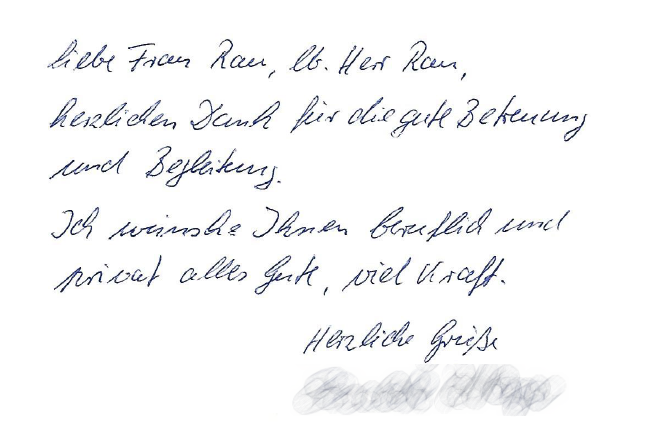 liebe Frau Rau, lb. Herr Rau,
herzlichen Dank für die gute Betreuung
und Begleitung.
Ich wünsche Ihnen beruflich und
privat alles Gute, viel Kraft.
Herzliche Grüße